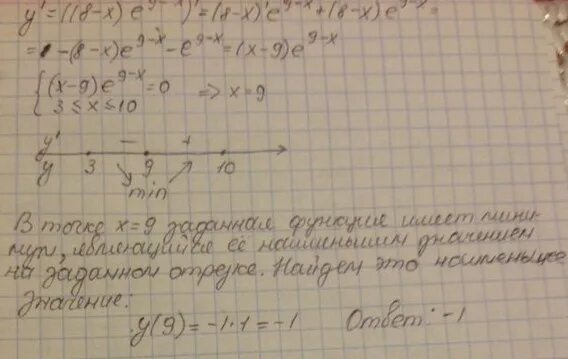 y' = ((8-x) e^{9-x})' = (8-x)' e^{9-x} + (8-x) e^{9-x} =
= -(8-x)e^{9-x} - e^{9-x} = (x-9)e^{9-x}
{ (x-9)e^{9-x} = 0
3 ≤ x ≤ 10 ⇒ x = 9
y' - +
y 3 9 10
min
В точке x=9 заданная функция имеет мини-
мум, являющийся её наименьшим значением
на заданном отрезке. Найдем это наименьшее
значение:
y(9) = -1·1 = -1 Ответ: -1